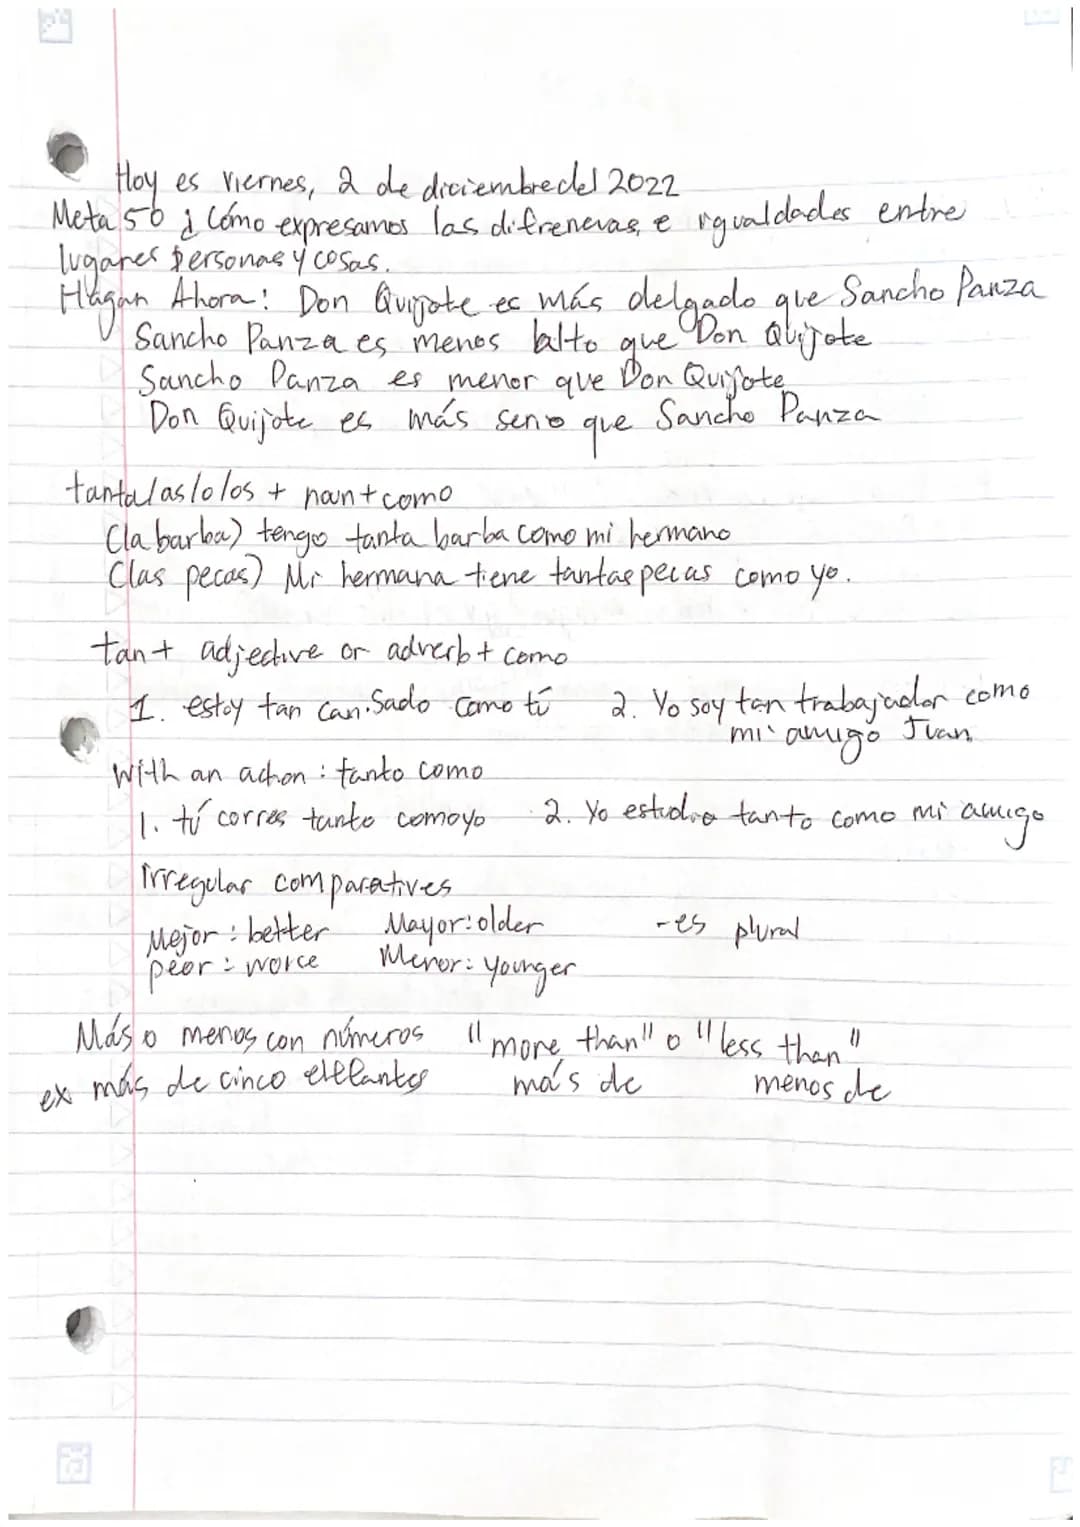 Hoy es viernes, 2 de diciembre del 2022
Meta 56 ¿ Cómo expresamos las difrenevas, e igualdades entre
lugares personas y cosas.
Hagan Ahora: Don Quijote es más delgado que Sancho Panza
Sancho Panza es menos alto que Don Quijote
Sancho Panza es menor que Don Quijote
Don Quijote es más serio que Sancho Panza
tanta/as/o/os + noun + como
(la barba) tengo tanta barba como mi hermano
(las pecas) Mi hermana tiene tantas pecas como yo.
tan + adjective or adverb + como
1. estoy tan cansado como tú 2. Yo soy tan trabajador como
mi amigo Juan
With an action : tanto como
1. tú corres tanto como yo 2. Yo estudio tanto como mi amigo
irregular comparatives
Mejor : better Mayor: older -es plural
peor : worce Menor: younger
Más o menos con números "more than" o "less than"
ex más de cinco más de menos de